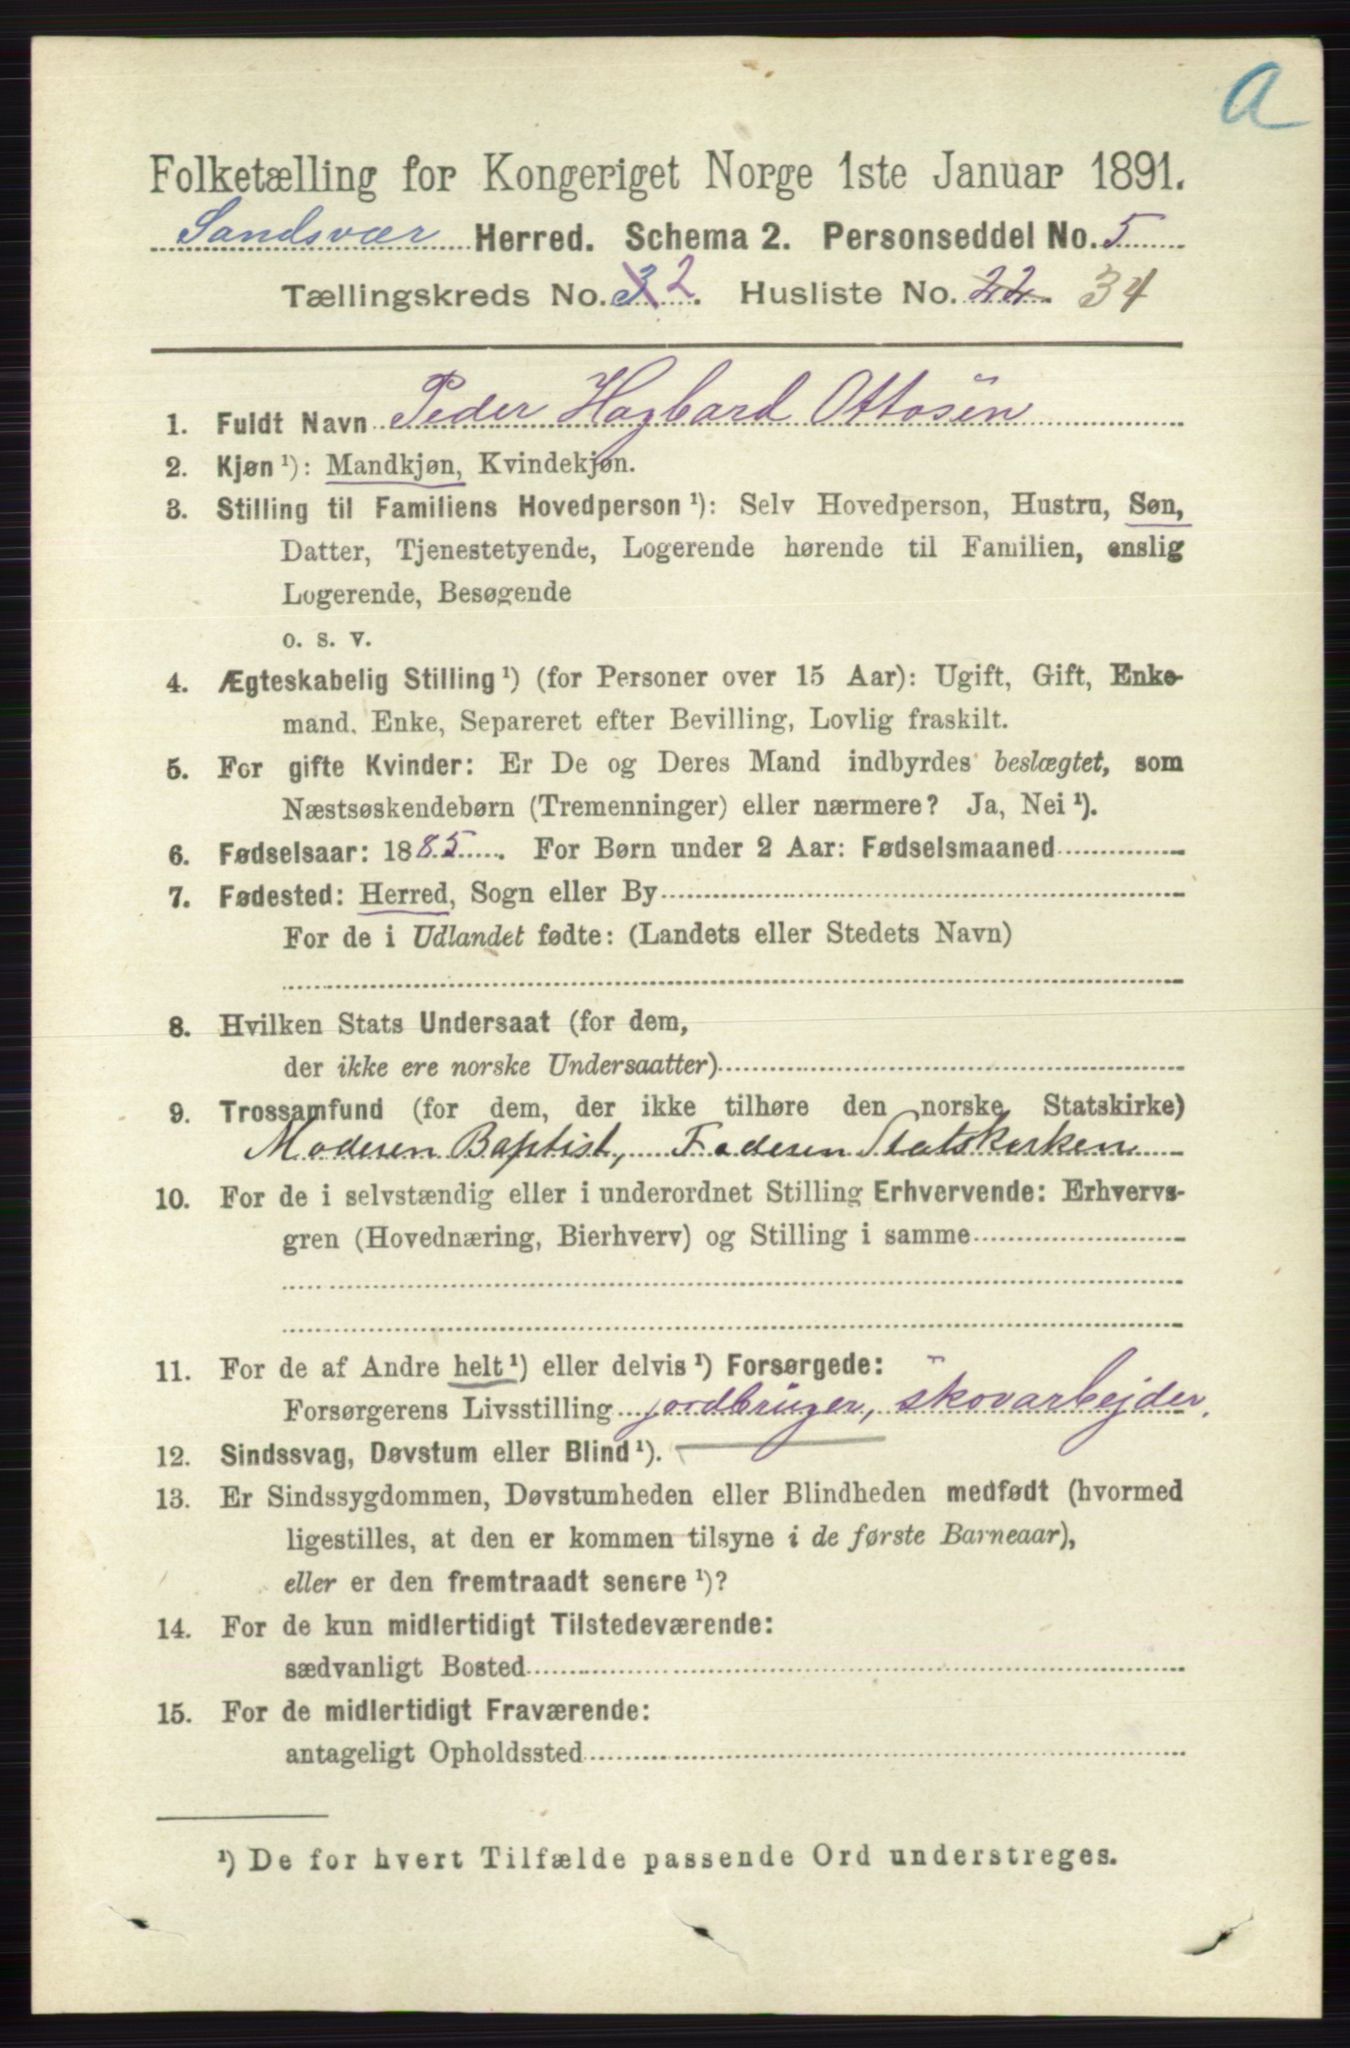 a
Folketælling for Kongeriget Norge 1ste Januar 1891.
Sandsvær Herred. Schema 2. Personseddel No. 5
Tællingskreds No. 3 2. Husliste No. 22. 34
1. Fuldt Navn Peder Hagbard Ottosen
2. Kjøn ¹): Mandkjøn, Kvindekjøn.
3. Stilling til Familiens Hovedperson ¹): Selv Hovedperson, Hustru, Søn,
Datter, Tjenestetyende, Logerende hørende til Familien, enslig
Logerende, Besøgende
o. s. v.
4. Ægteskabelig Stilling ¹) (for Personer over 15 Aar): Ugift, Gift, Enke-
mand, Enke, Separeret efter Bevilling, Lovlig fraskilt.
5. For gifte Kvinder: Er De og Deres Mand indbyrdes beslægtet, som
Næstsøskendebørn (Tremenninger) eller nærmere? Ja, Nei ¹).
6. Fødselsaar: 1885. For Børn under 2 Aar: Fødselsmaaned
7. Fødested: Herred, Sogn eller By
For de i Udlandet fødte: (Landets eller Stedets Navn)
8. Hvilken Stats Undersaat (for dem,
der ikke ere norske Undersaatter)
9. Trossamfund (for dem, der ikke tilhøre den norske Statskirke)
Moderen Baptist, Faderen Statskirken
10. For de i selvstændig eller i underordnet Stilling Erhvervende: Erhvervs-
gren (Hovednæring, Bierhverv) og Stilling i samme
11. For de af Andre helt ¹) eller delvis ¹) Forsørgede:
Forsørgerens Livsstilling jordbruger, skovarbejder.
12. Sindssvag, Døvstum eller Blind ¹).
13. Er Sindssygdommen, Døvstumheden eller Blindheden medfødt (hvormed
ligestilles, at den er kommen tilsyne i de første Barneaar),
eller er den fremtraadt senere ¹)?
14. For de kun midlertidigt Tilstedeværende:
sædvanligt Bosted
15. For de midlertidigt Fraværende:
antageligt Opholdssted
¹) De for hvert Tilfælde passende Ord understreges.